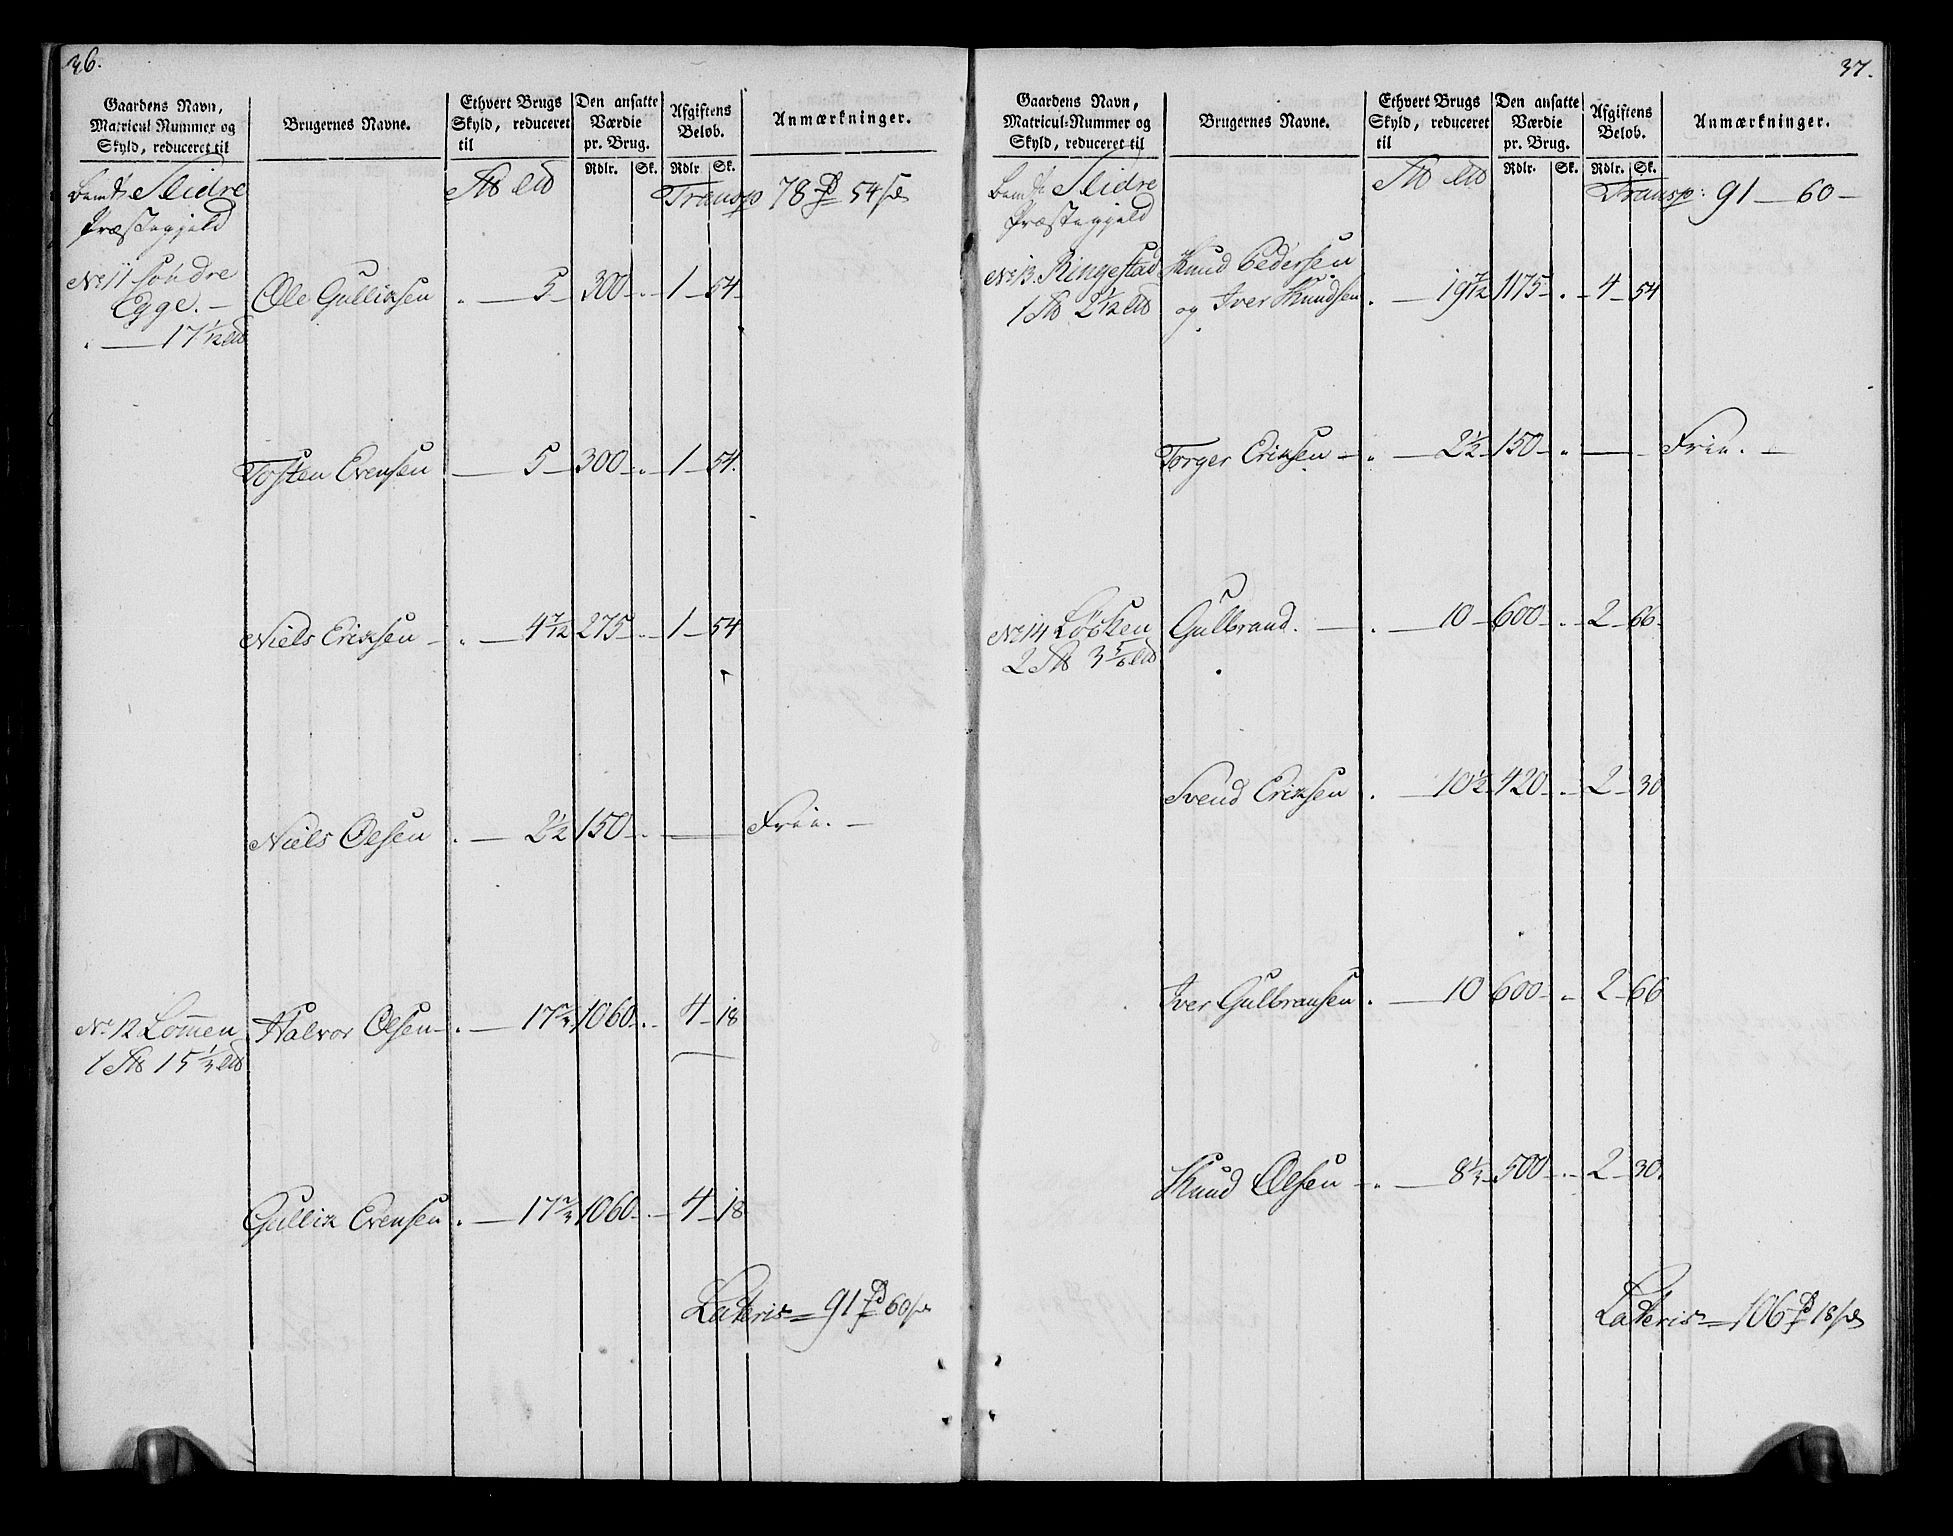 36.
Gaardens Navn,
Matricul Nummer og
Skyld, reduceret til
Brugernes Navne.
Ethvert Brugs
Skyld, reduceret
til
Den ansatte
Værdie
pr. Brug.
Rdlr. Sk.
Afgiftens
Beløb.
Rdlr. Sk.
Anmærkninger.
Slidre
Præstegjeld
Transp 78 54
No 11 Søndre
Egge. —
17 1/12
Ole Gulliksen 5 300 1 54
Tosten Evensen 5 300 1 54
Niels Eriksen 4 7/12 275 1 54
Niels Olsen 2 1/2 150 Frie.
No 12 Lomen
1 15 1/3
Halvor Olsen 17 2/3 1060 4 18
Gullik Evensen 17 2/3 1060 4 18
Lateris 91 60
37.
Gaardens Navn,
Matricul-Nummer og
Skyld, reduceret til
Brugernes Navne.
Ethvert Brugs
Skyld, reduceret
til
Den ansatte
Værdie
pr. Brug.
Rdlr. Sk.
Afgiftens
Beløb.
Rdlr. Sk.
Anmærkninger.
Slidre
Præstegjeld
Transp: 91 — 60 —
No 13 Ringestad
1 2 1/12
Knud Pedersen
og Iver Knudsen 19 7/12 1175 4 54
Torger Eriksen 2 1/2 150 Frie.
No 14 Løcken
2 3 5/6
Gulbrand. 10 600 2 66
Svend Eriksen 10 1/2 420 2 30
Iver Gulbransen 10 600 2 66
Knud Olsen 8 1/3 500 2 30
Lateris 106 18